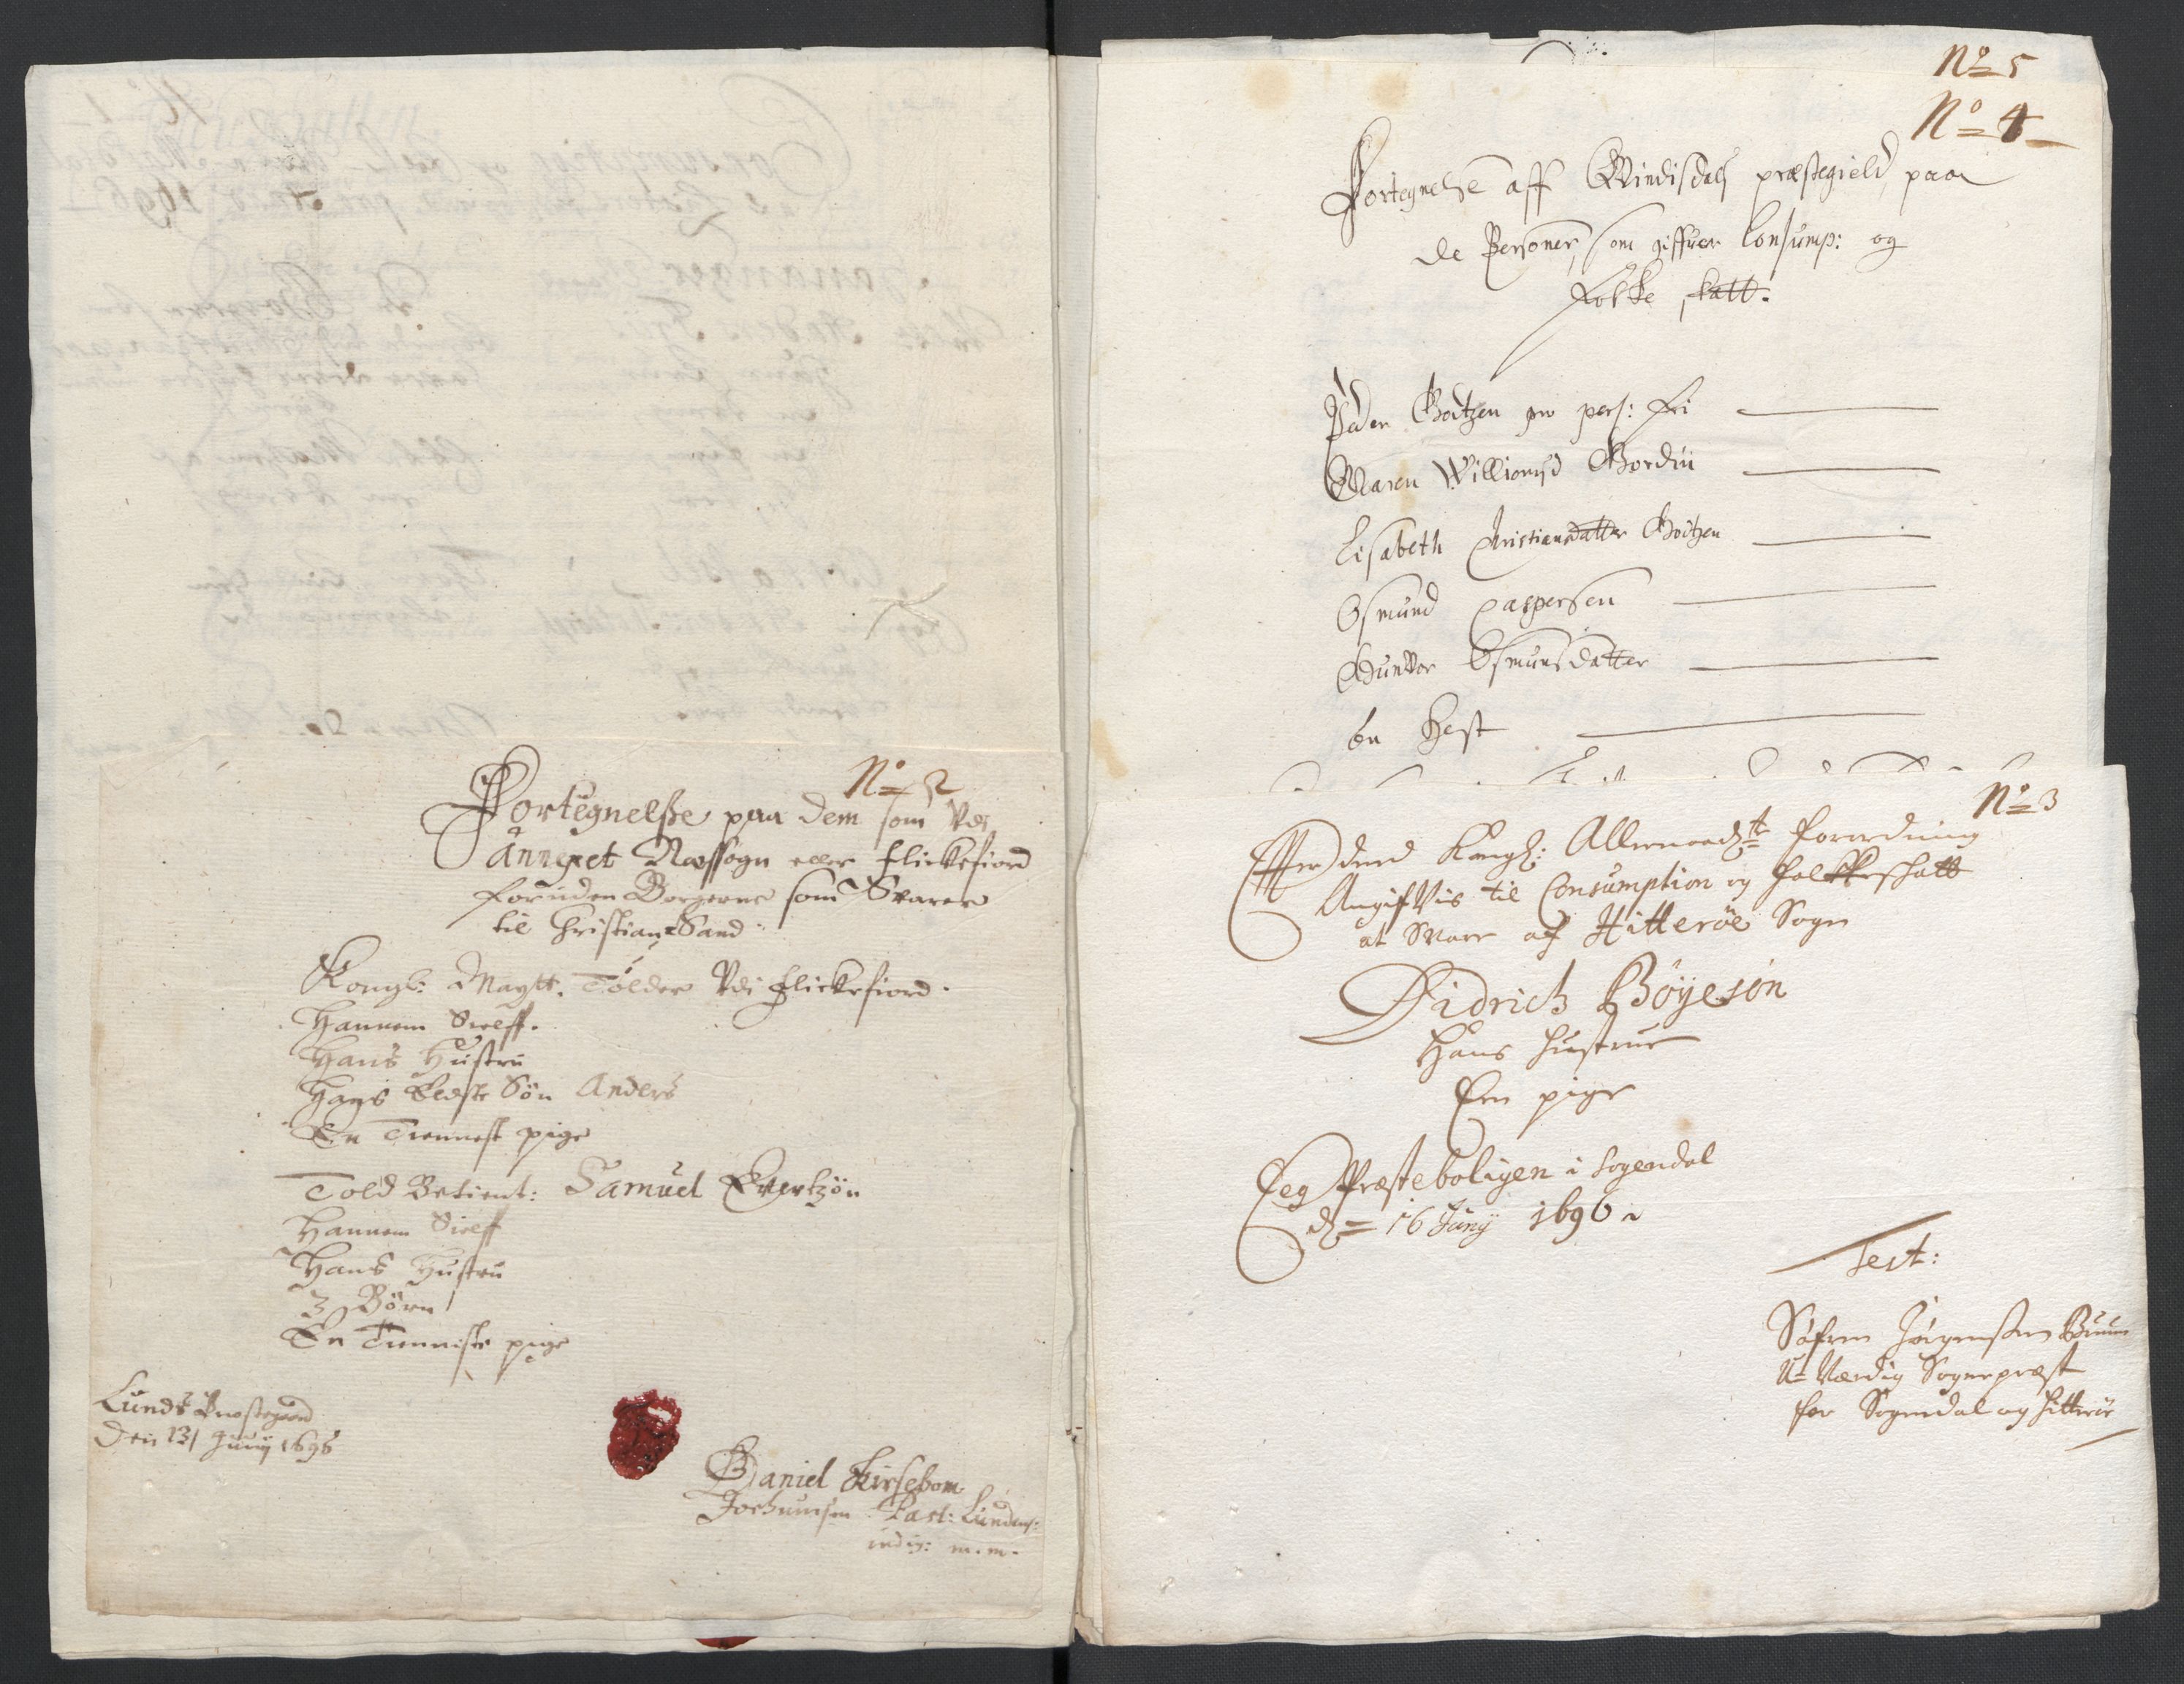 No 2
Fortegnelße paa dem som Udi
Annexet Næssogn eller Flickefiord
foruden Borgerne som Svarer
til Christian-Sand:
Kongl: Maytt. Tolder Udi Flickefiord.
Hannem Sielff.
Hans Hustru
Hans Eldste Søn Anders
En Tienneste pige
Told Betient: Samuel Evertzøn
Hannem Sielff
Hans Hustru
3 Børn
En Tienniste pige
Lunds Præstegaard
Den 13 Junij 1696
Daniel Kirsebom
Jochumsen Past: Lundens:
indig: m.m.
No 5
No 4
Fortegnelße aff Qvindisdals præstegield paa
de Personer, som giffver Consump: og
Folke skatt.
Peder Boitzen per pers: fri
Maren Willomsd Gordiu
Lisabeth Christiansdatter Boitzen
Osmund Caspersen
Gunvor Osmunsdatter
En Hest
No 3
Efter dend Kongl: Allernaadste forordning
Angifvis til Consumption og Folkeskatt
at Svare af Hitterøe Sogn
Didrich Bøyesøn
Hans Hustrue
Een pige
Præsteboligen i Sogendal
d= 16 Junij 1696
Test:
Søfren Jørgensen Bruun
U-Værdig Sogneprest
for Sogendal og Hitterøe